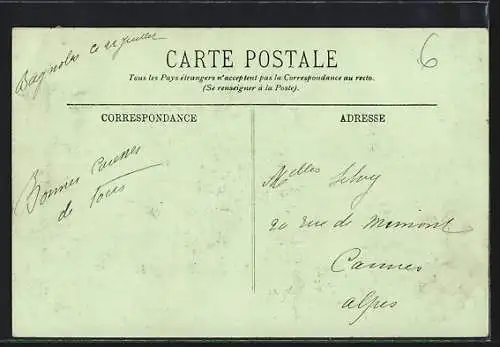 Bagnoles ce 22 juillet
6
CARTE POSTALE
Tous les Pays étrangers n'acceptent pas la Correspondance au recto.
(Se renseigner à la Poste).
CORRESPONDANCE
ADRESSE
Bonnes caresses
de tous
Melles
20 rue de Mimont
Cannes
Alpes